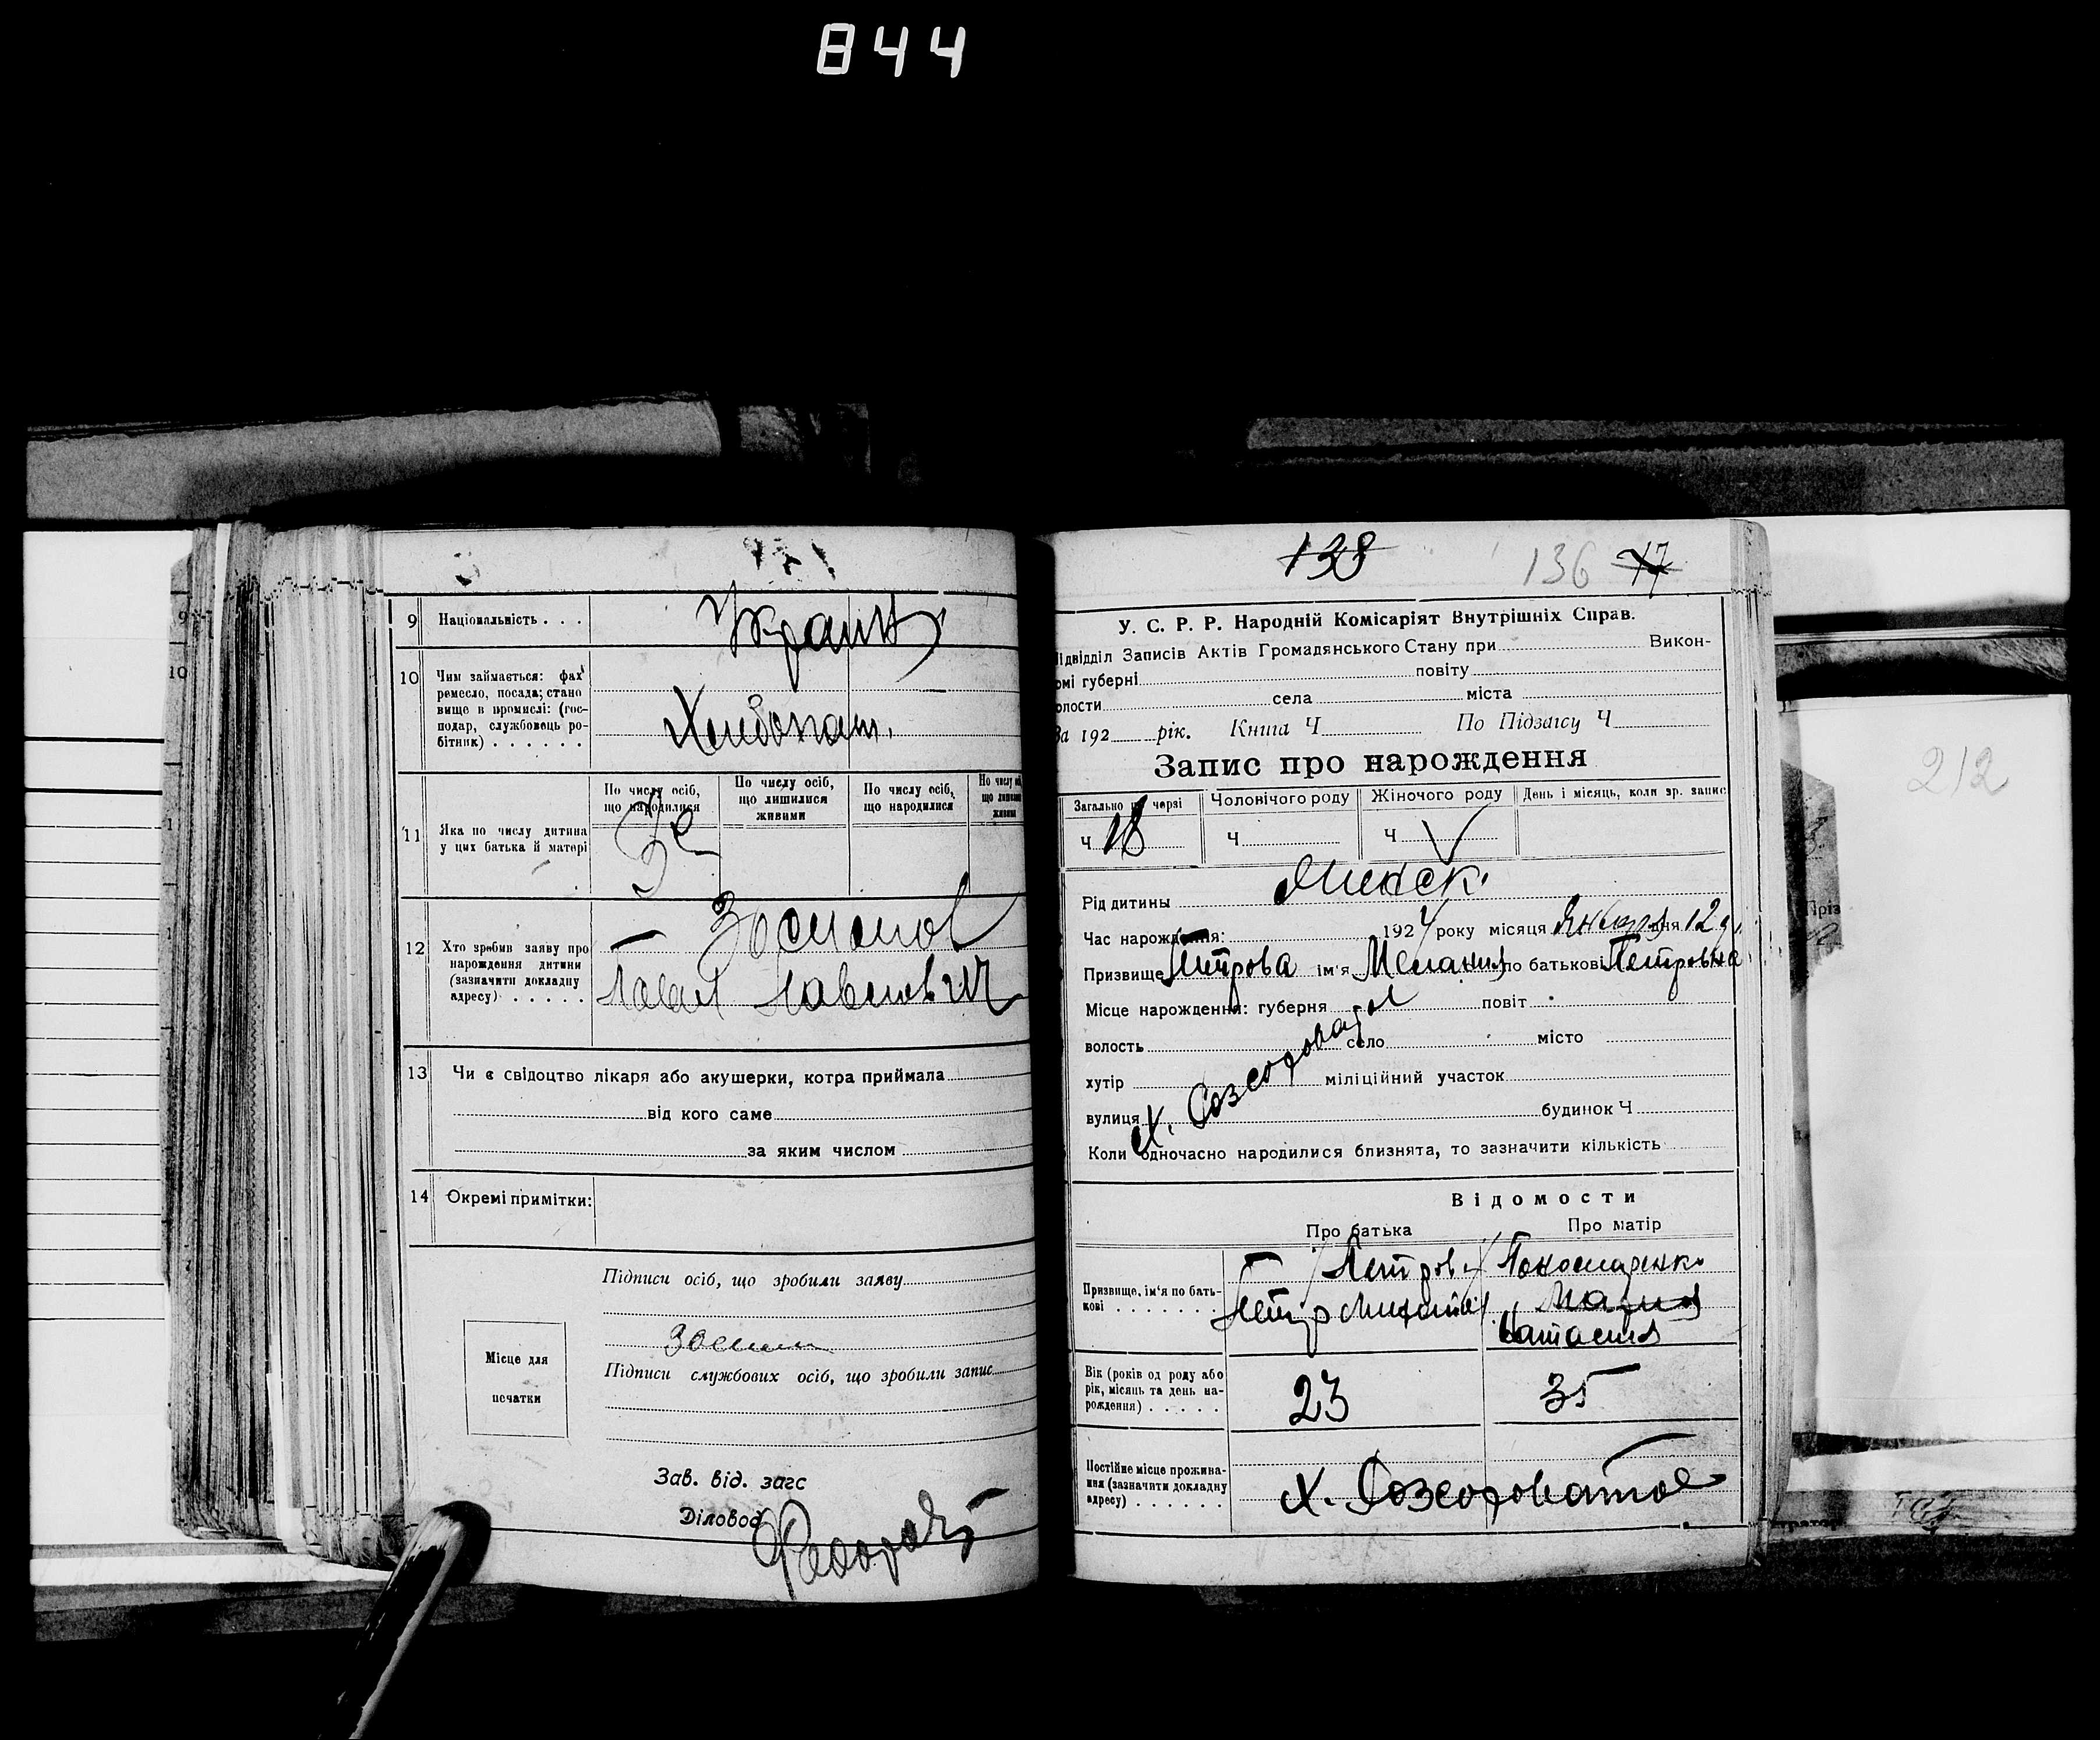 844
9 Національність . . .
Украин
10 Чим займається: фах
ремесло, посада; стано
вище в промислі: (гос-
подар, службовець ро-
бітник) . . . . . .
Хлебопаш.
11 Яка по числу дитина
у цих батька й матері
По числу осіб,
що народилися
По числу осіб,
що лишилися
живими
По числу осіб,
що народилися
По числу
12 Хто зробив заяву про
нарождення дитини
(зазначити докладну
адресу) . . . . .
Павел
13 Чи є свідоцтво лікаря або акушерки, котра приймала
від кого саме
за яким числом
14 Окремі примітки:
Підписи осіб, що зробили заяву
Місце для
печатки
Підписи службових осіб, що зробили запис
Зав. від. загс
Діловод
138 136 17
У. С. Р. Р. Народній Комісаріят Внутрішніх Справ.
ідвідділ Записів Актів Громадянського Стану при Викон-
омі губерні повіту
олости села міста
За 192 рік. Книга Ч По Підзапису Ч
Запис про нарождення
Загально по черзі Чоловічого роду Жіночого роду День і місяць, коли зр. запис
Ч 18 Ч Ч
Рід дитини Женск.
Час нарождення: 1924 року місяця Января дня 12 д.
Призвище Петрова ім'я Мелания по батькові Петровна
Місце нарождення: губерня повіт
волость село місто
хутір міліційний участок
вулиця Х. будинок Ч
Коли одночасно народилися близнята, то зазначити кількість
Відомости
Про батька Про матір
Призвище, ім'я по бать-
кові . . . . . . .
Петров Пономаренко
Петр Мария
Настасия
Вік (років од роду або
рік, місяць та день на-
рождення) . . . . .
23 35
Постійне місце прожива-
ння (зазначити докладну
адресу) . . . . . .
Х.
212